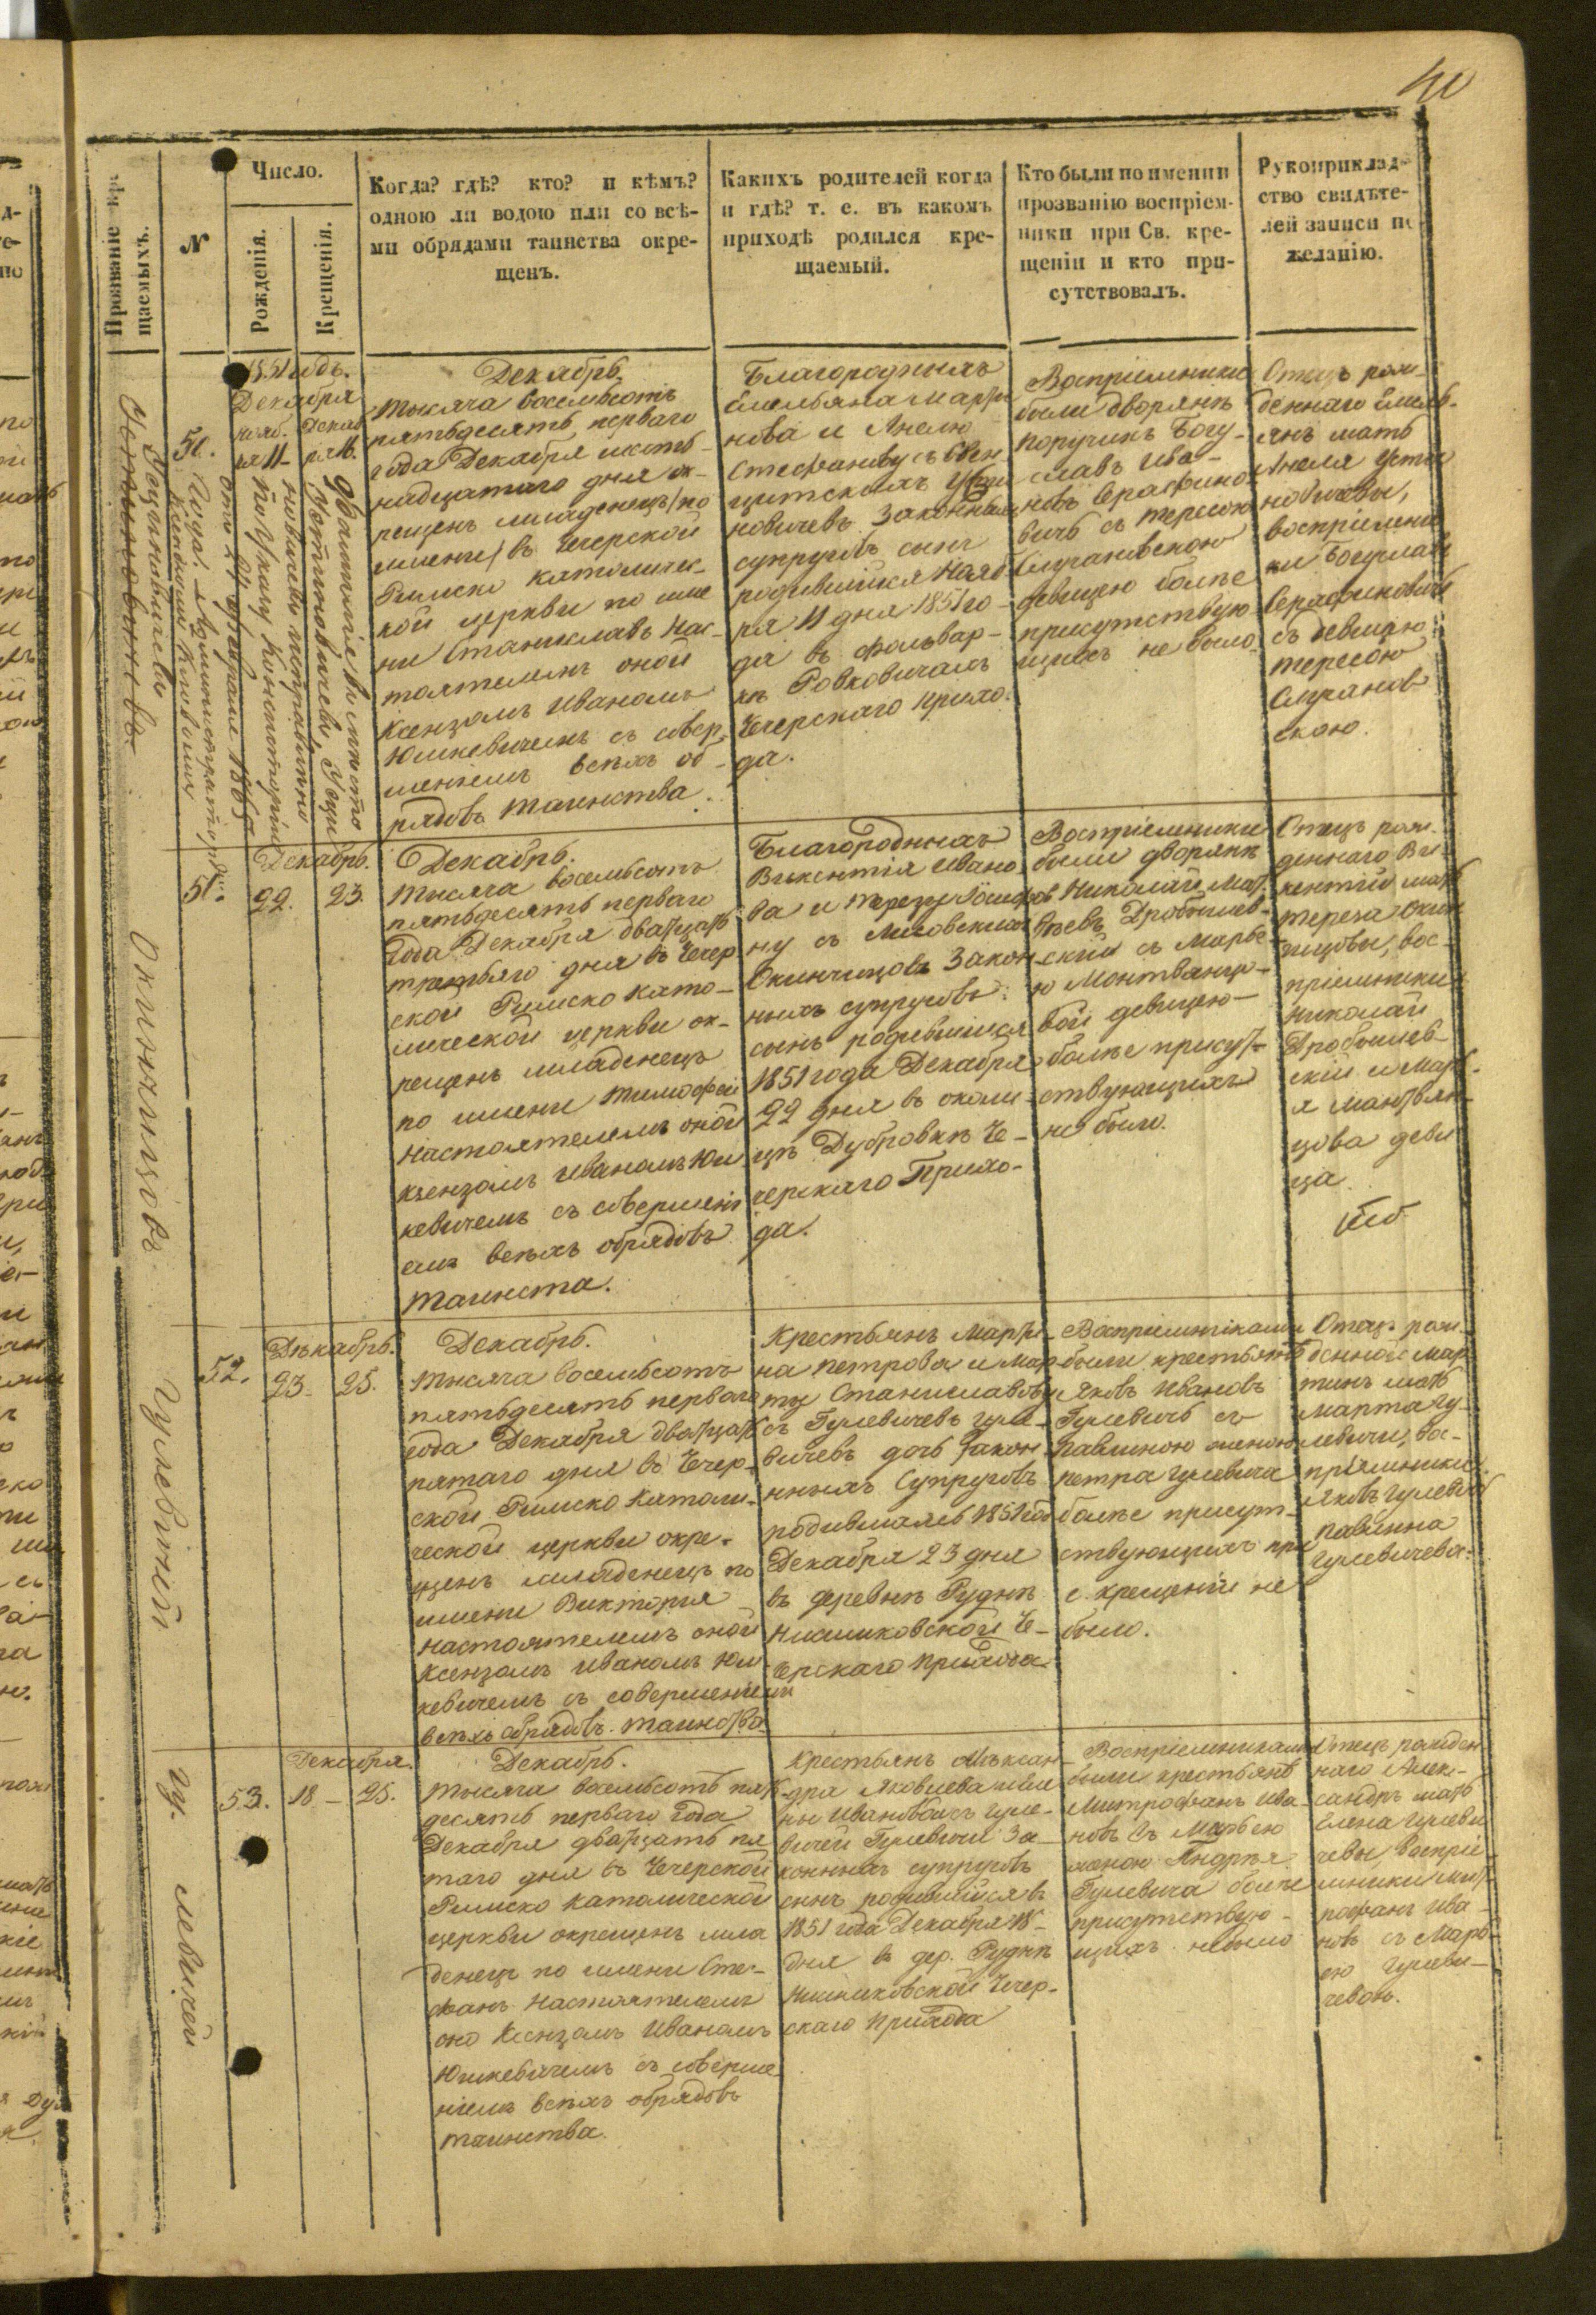 40
Прозваніе кре-
щаемыхъ.
№
Число.
Рожденія.
Крещенія.
Когда? гдѣ? кто? и кѣмъ?
одною ли водою или со всѣ-
ми обрядами таинства окре-
щенъ.
Какихъ родителей когда
и гдѣ? т. е. въ какомъ
приходѣ родился кре-
щаемый.
Кто были по имени и
прозванію воспріем-
ники при Св. кре-
щеніи и кто при-
сутствовалъ.
Рукоприклад-
ство свидѣте-
лей записи по
желанію.
1851 годъ.
Декабря
50.
нояб.
ря 11
декаб
ря 16.
Декабрь
Тысяча восемьсотъ
пятьдесятъ перваго
года Декабря шесть-
надцатаго дня ок-
рещенъ младенецъ по
имени въ Чечерской
Римско католичес-
кой церкви по име
ни Станиславъ Нас-
тоятелемъ оной
Ксензомъ Иваномъ
Юшкевичемъ съ совер-
шеніемъ всѣхъ об-
рядовъ таинства.
Благородныхъ
Емельяна Марты
нова и Анелю
Стефанову съ
новичевъ законныхъ
супруговъ сынъ
родившійся Нояб
ря 11 дня 1851 го-
да въ фольвар-
кѣ Ровковичахъ
Чечерскаго прихо-
да.
Воспріемники
были дворянъ
поручикъ Богу-
славъ Ива-
новъ Серафино
вичъ съ Терезою
дѣвицею болѣе
присутствую
щихъ не было.
Отецъ рож-
деннаго Емель-
янъ мать
Анеля Усти
новичевы,
воспріемни
ки Богуславъ
Серафиновичъ
съ дѣвицею
Терезою
скою.
51.
Декабрь.
22.
23.
Декабрь.
Тысяча восемьсотъ
пятьдесятъ перваго
года Декабря двадцать
третьяго дня въ Чечер
ской Римско като-
лической церкви ок-
рещенъ младенецъ
по имени Тимофей
настоятелемъ оной
ксензомъ Иваномъ Юш
кевичемъ съ совершені
емъ всѣхъ обрядовъ
таинста.
Благородныхъ
Викентія Ивано
ва и Терезу Іосифов
ну съ Лисовскихъ
Окинчицовъ Закон
ныхъ супруговъ
сынъ родившійся
1851 года Декабря
22 дня въ околи
цѣ Дубровкѣ Че-
черскаго Прихо-
да.
Воспріемники
были дворянъ
Николай Мат
вѣевъ Дробышев-
скій съ Марье
ю Монтвянцо-
вой дѣвицею
болѣе присут-
ствующихъ
не было.
Отецъ рож-
деннаго Ви-
кентій мать
Тереза Окин
чицовы, вос-
пріемники
Николай
Дробышев-
скій и Марь-
я Мантвян-
цова дѣви
ца
52.
Дѣкабрь.
23.
25.
Декабрь.
Тысяча восемьсотъ
пятьдесятъ перваго
года Декабря двадцать
пятаго дня въ Чечер-
ской Римско Католи-
ческой церкви окре-
щенъ младенецъ по
имени Викторія
настоятелемъ оной
Ксензомъ Иваномъ Юш
кевичемъ съ совершеніемъ
всѣхъ обрядовъ таинства
Крестьянъ Марты-
на Петрова и Мар-
ту Станиславову
съ Гулевичевъ Гуле-
вичевъ дочь закон
нныхъ супруговъ
родившаясь 1851 года
Декабря 23 дня
въ деревнѣ Руднѣ
Нисимковской Че-
черскаго прихода.
Воспріемниками
были крестьянъ
Яковъ Ивановъ
Гулевичъ съ
Павлиною женою
Петра Гулевича
болѣе присут-
ствующихъ при
с. крещеніи не
было.
Отецъ рож-
денной Мар-
тинъ мать
Марта Гу-
левичи, вос-
пріемники
Яковъ Гулевичъ
Павлина
Гулевичева.
53.
Декабря.
18
25.
Декабрь.
Тысяча восемьсотъ пять
десятъ перваго года
Декабря двадцать пя
таго дня въ Чечерской
Римско католической
церкви окрещенъ мла
денецъ по имени Сте-
фанъ Настоятелемъ
оно Ксензомъ Иваномъ
Юшкевичемъ съ соверше
ніемъ всѣхъ обрядовъ
таинства.
Крестьянъ Алѣксан-
дра Яковлева и Еле
ны Ивановыхъ Гуле-
вичей Гулевичи за
конныхъ супруговъ
сынъ родившійся въ
1851 года Декабря 18
дня въ дер. Руднѣ
Нисимковской Чечер-
скаго Прихода
Воспріемниками
были крестьянъ
Митрофанъ Ива-
новъ съ Марьею
женою Андрѣя
Гулевича болѣе
присутствую-
щихъ небыло
Отецъ рожден
наго Алек-
сандръ мать
Елена Гулеви
чевы, воспріе
мники Мит-
рофанъ Ива-
новъ съ Марь-
ею Гулеви-
чевою.
Устиновичевъ
Гоциновичевъ
Окинчицовъ
Гулевичей
Гулевичей